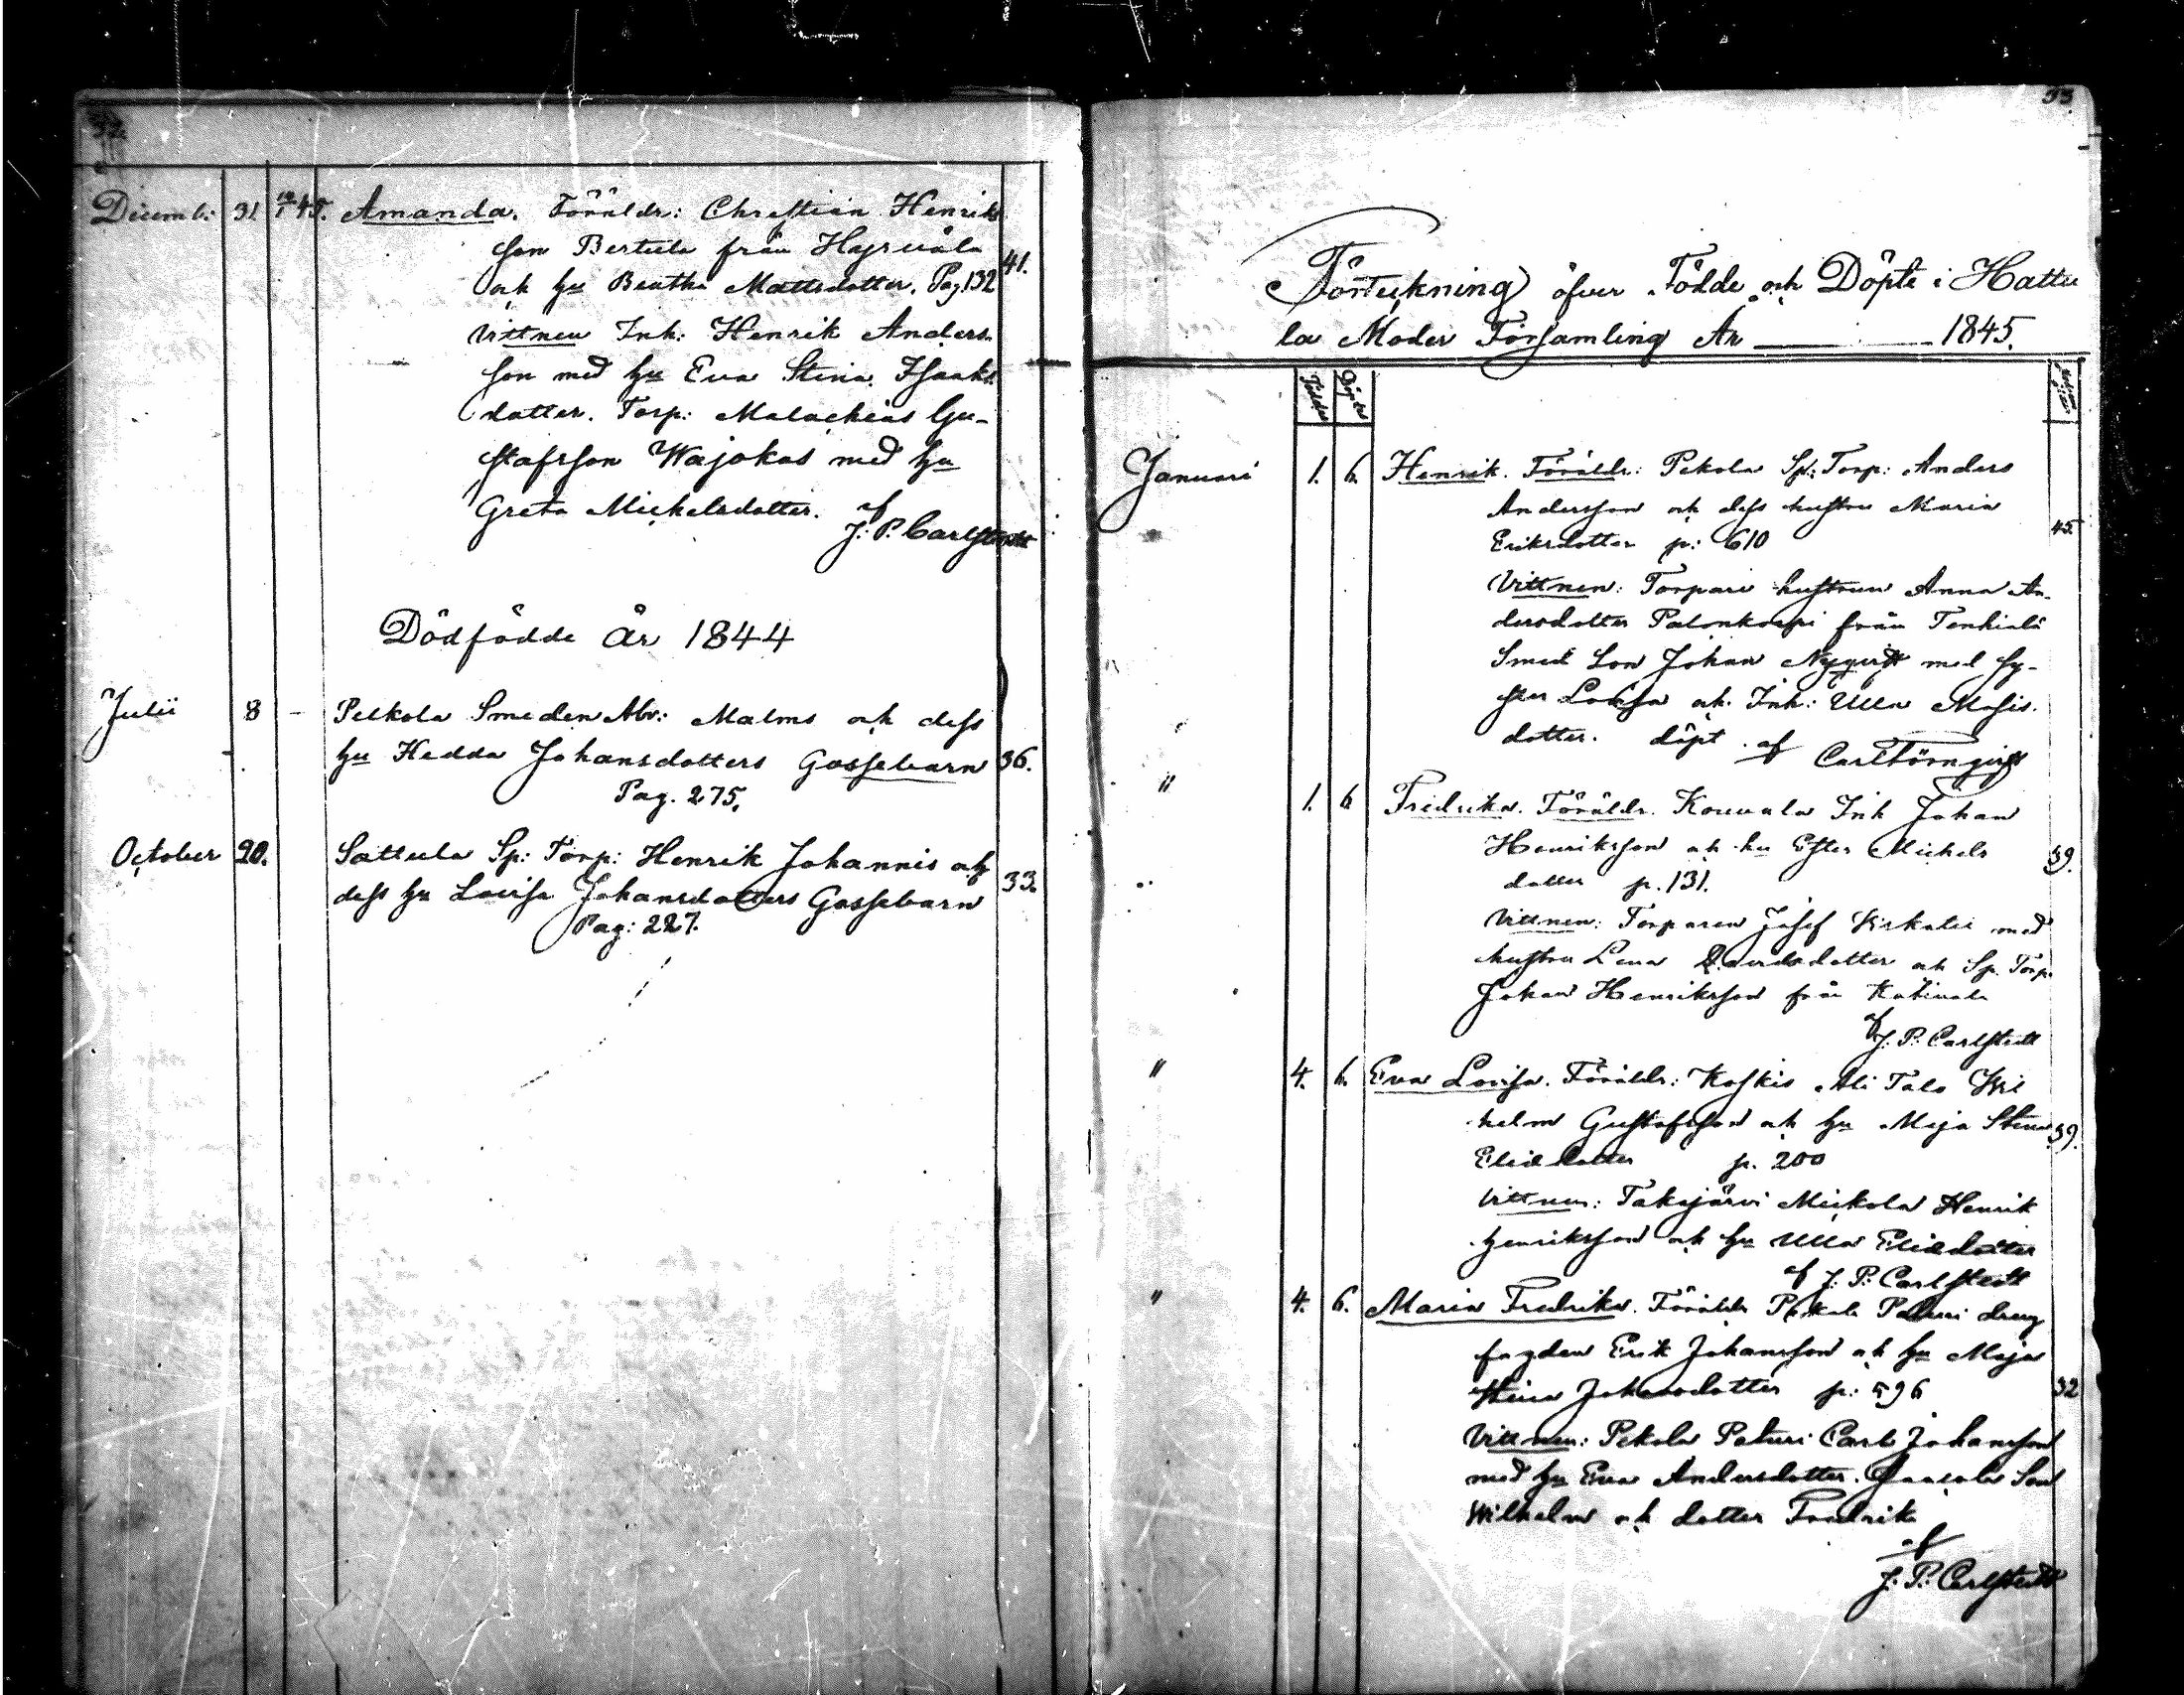 32.
Decemb: 31. 12/1 45. Amanda. Föräldr: Christian Henriks
son Bertula från Hyrvälä 41.
och hu Beatha Mattsdotter. Pag. 132
Vittnen Inh: Henrik Anders
son med hu Eva Stina Isaaks
dotter. Torp: Malachias Gu-
stafsson Wajokas med hu
Greta Michelsdotter. af
J. P. Carlstedt
Dödfödde år 1844
Julii 8 - Pelkola Smeden Abr: Malms och dess
hu Hedda Johansdotters Gossebarn 36.
Pag. 275.
October 20. Sattula Sp: Torp: Henrik Johannis och
dess hu Lovisa Johansdotters Gossebarn 33.
Pag: 227.
33
Förteckning öfver Födde och Döpte i Hattu
la Moder Församling År 1845.
Födelse Döpelse
Januari 1. 6. Henrik. Föräldr: Pekola Sp: Torp: Anders
Andersson och dess hustru Maria 45
Eriksdotter p: 610
Vittnen: Torpare hustrun Anna An-
dersdotter Palonkorpi från Tenhiälä
Smed Son Johan Nyqvist med Sy-
ster Lovisa och Inh: Ulla Mosis
dotter. döpt af Carl Törnqvist
" 1. 6 Fredrika. Föräldr. Kouvala Inh Johan
Henriksson och hu Ester Michels 39.
dotter p. 131.
Vittnen: Torparen Josef med
hustru Lena Davidsdotter och Sp. Torp.
Johan Henriksson från Katinala
af J. P. Carlstedt
" 4. 6. Eva Lovisa. Föräldr: Koskis Ali Talo Wil
helm Gustafsson och hu Maja Stina 39.
Eliædotter p. 200
Vittnen: Takajärvi Mickola Henrik
Henriksson och hu Ulla Eliædotter
af J. P. Carlstedt
" 4. 6. Maria Fredrika. Föräldr Pekola Paturi dreng
fogden Erik Johansson och hu Maja
Stina Johansdotter p: 596 32
Vittnen: Pekola Paturi Carl Johansson
med hu Eva Andersdotter. Son
Wilhelm och dotter Fredrik
af
J. P. Carlstedt